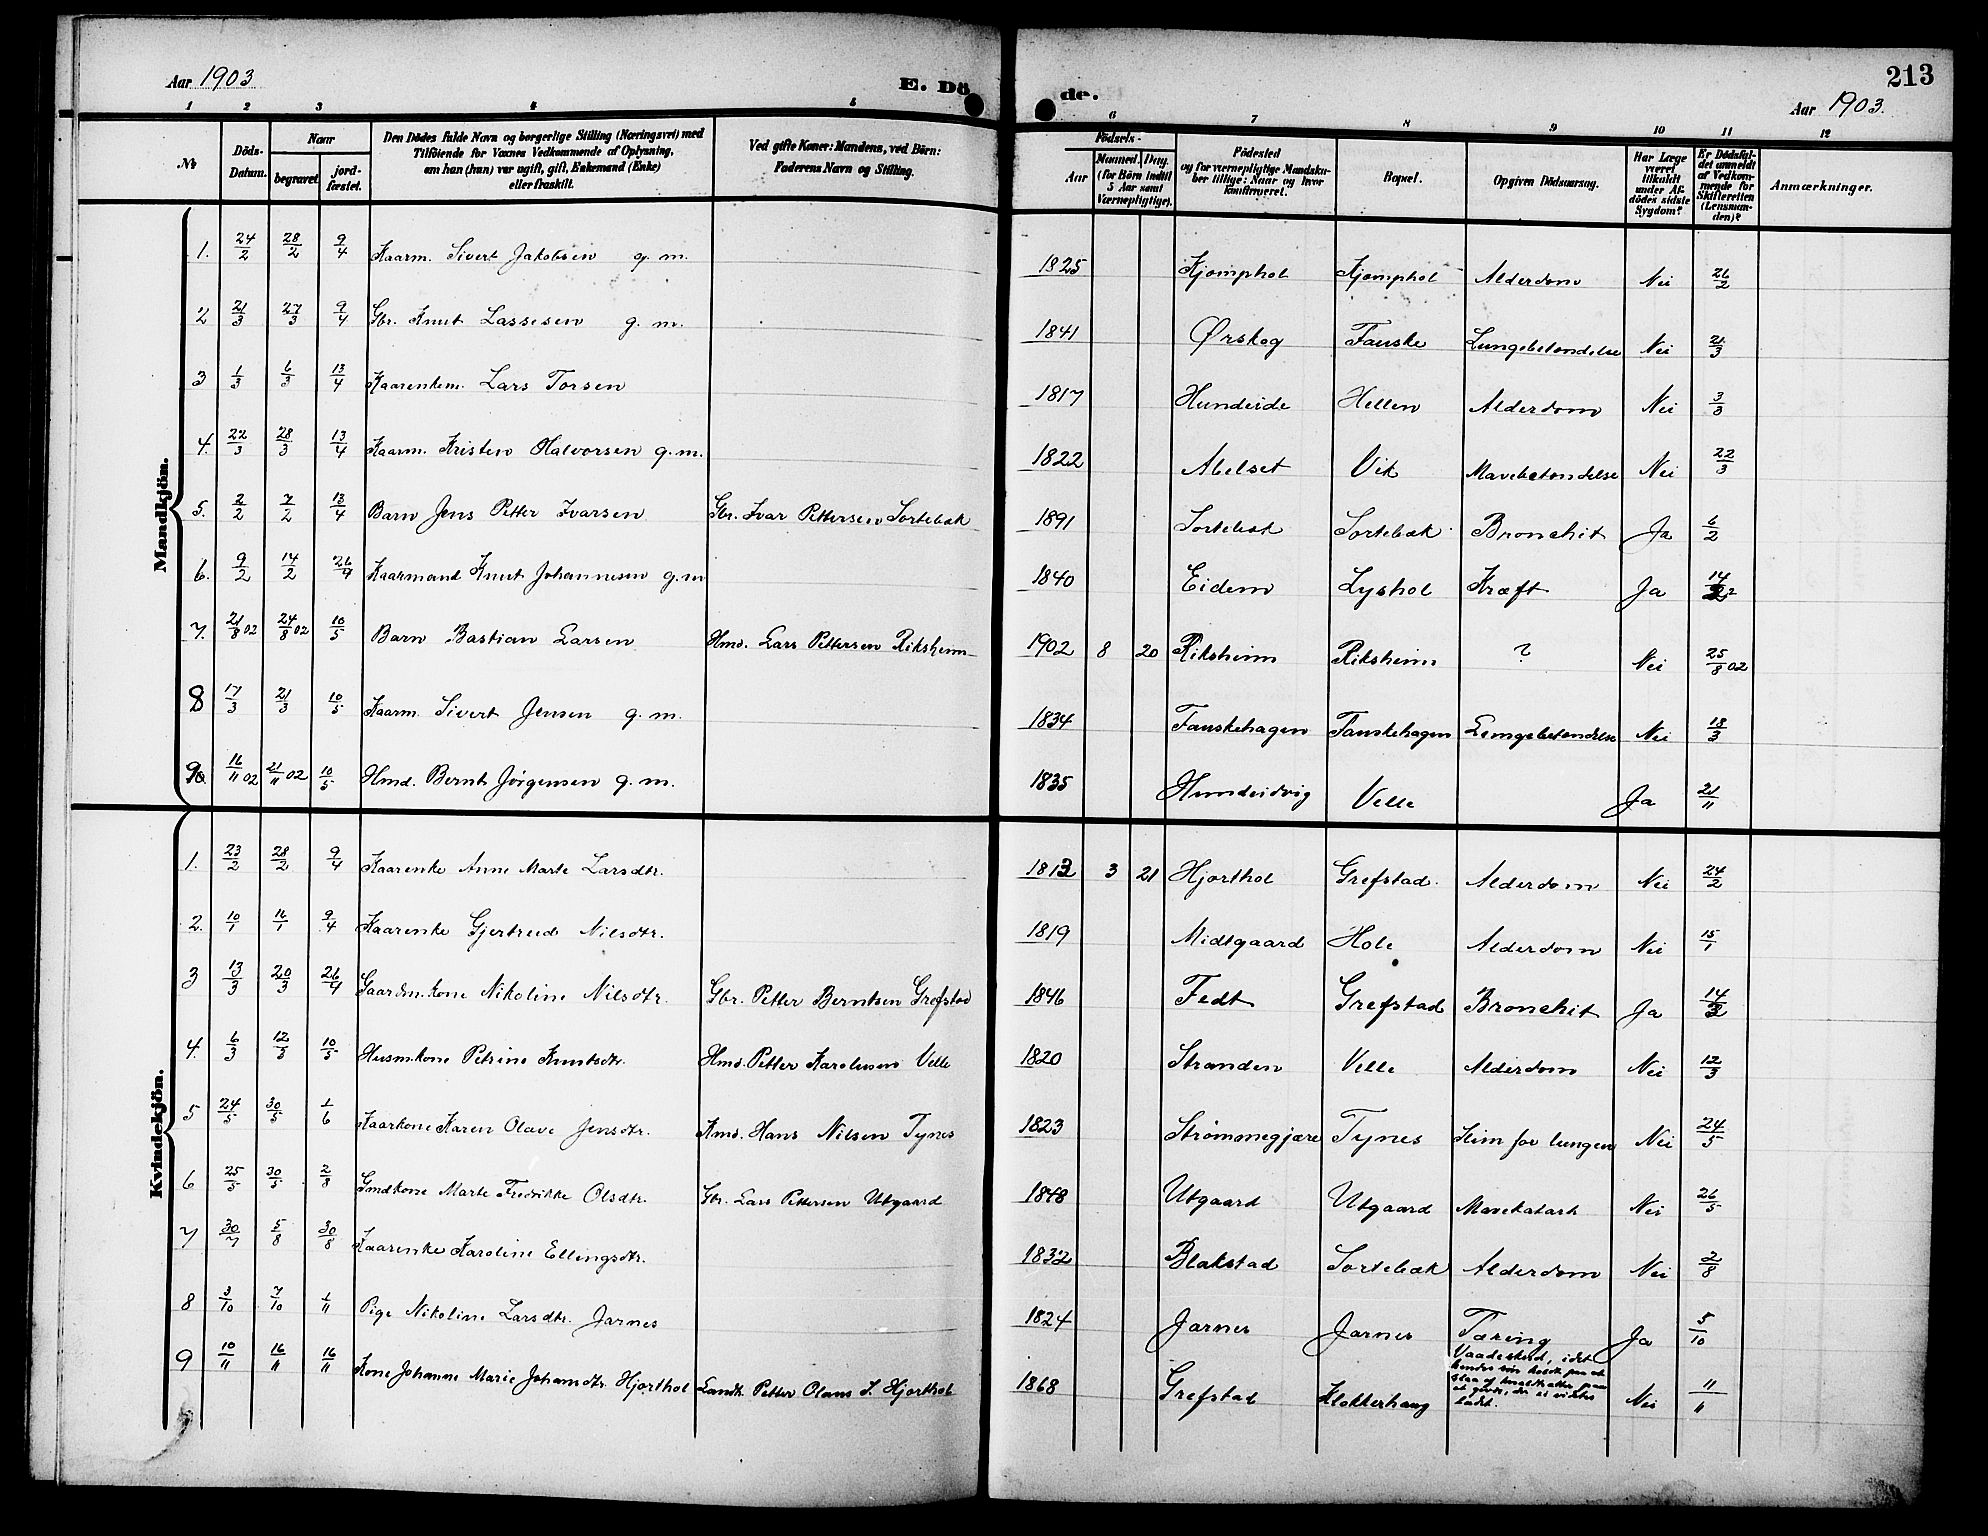 Aar 1903
E. Dö de.
213
Aar 1903.
1 2 3 4 5 6 7 8 9 10 11 12
No
Döds-Datum.
Naar
begravet.
jord-fæstet.
Den Dödes fulde Navn og borgerlige Stilling (Næringsvei) med
Tilföiende for Voxnes Vedkommende af Oplysning,
om han (hun) var ugift, gift, Enkemand (Enke)
eller fraskilt.
Ved gifte Koner: Mandens, ved Börn:
Faderens Navn og Stilling.
Födsels-
Aar
Maaned. Dag.
(for Börn indtil
5 Aar samt
Værnepligtige).
Födested
og for værnepligtige Mandskaber tillige: Naar og hvor konfirmeret.
Bopæl.
Opgiven Dödsaarsag.
Har Læge
været
tilkaldt
under Afdödes sidste
Sygdom?
Er Dödsfaldet anmeldt
af Vedkommende for
Skifteretten
(Lensmanden)?
Anmærkninger.
Mandkjön.
1. 24/2 28/2 9/4 Kaarm. Sivert Jakobsen g. m. 1825 Kjømphol Kjømphol Alderdom Nei 26/2
2 21/3 27/3 9/4 Gbr. Knut Lassesen g. m. 1841 Ørskog Fauske Lungebetændelse Nei 21/3
3 1/3 6/3 13/4 Kaarenkem. Lars Torsen 1817 Hundeide Hellen Alderdom Nei 3/3
4. 22/3 28/3 13/4 Kaarm. Kristen Halvorsen g. m. 1822 Abelset Vik Mavebetændelse Nei 22/3
5. 2/2 7/2 13/4 Barn Jens Petter Ivarsen Gbr. Ivar Pettersen Sortebæk 1891 Sortebæk Sortebæk Bronchit Ja 6/2
6. 9/2 14/2 26/4 Kaarmand Knut Johannesen g. m 1840 Eidem Lyshol Kræft Ja 14/2
7. 21/8 02 24/8 02 10/5 Barn Bastian Larsen Hmd. Lars Pettersen Riksheim 1902 8 20 Riksheim Riksheim ? Nei 25/8 02
8 17/3 21/3 10/5 Kaarm. Sivert Jensen g. m. 1834 Fauskehagen Fauskehagen Lungebetændelse Nei 18/3
9. 16/11 02 21/11 02 10/5 Hmd. Bernt Jørgensen g. m. 1835 Hundeidvig Velle Ja 21/11
Kvindekjön.
1. 23/2 28/2 9/4 Kaarenke Anne Marte Larsdtr. 1813 3 21 Hjorthol Grefstad Alderdom Nei 24/2
2. 10/1 16/1 9/4 Kaarenke Gjertrud Nilsdtr. 1819 Midtgaard Hole Alderdom Nei 15/1
3 13/3 20/3 26/4 Gaardm.kone Nikoline Nilsdtr. Gbr. Petter Berntsen Grefstad 1846 Fedt Grefstad Bronchit Ja 14/3
4. 6/3 12/3 10/5 Husm.kone Petrine Knutsdtr. Hmd. Petter Karolusen Velle 1820 Stranden Velle Alderdom Nei 12/3
5 24/5 30/5 1/6 Kaarkone Karen Olave Jensdtr. Kmd. Hans Nilsen Tynes 1823 Strømmegjære Tynes Slim for lungen Nei 24/5
6 25/5 30/5 2/8 Gmdkone Marte Fredrikke Olsdtr. Gbr. Lars Pettersen Utgaard 1848 Utgaard Utgaard Mavekatarh Nei 26/5
7 30/7 5/8 30/8 Kaarenke Karoline Ellingsdtr. 1832 Blakstad Sortebæk Alderdom Nei 2/8
8 3/10 7/10 1/11 Pige Nikoline Larsdtr. Jarnes 1824 Jarnes Jarnes Tæring Ja 5/10
9 10/11 16/11 16/11 Kone Johanne Marie Johansdtr Hjorthol Landh. Petter Olaus J. Hjorthol 1868 Grefstad Klokkerhaug Vaadeskud, idet Nei 11/11